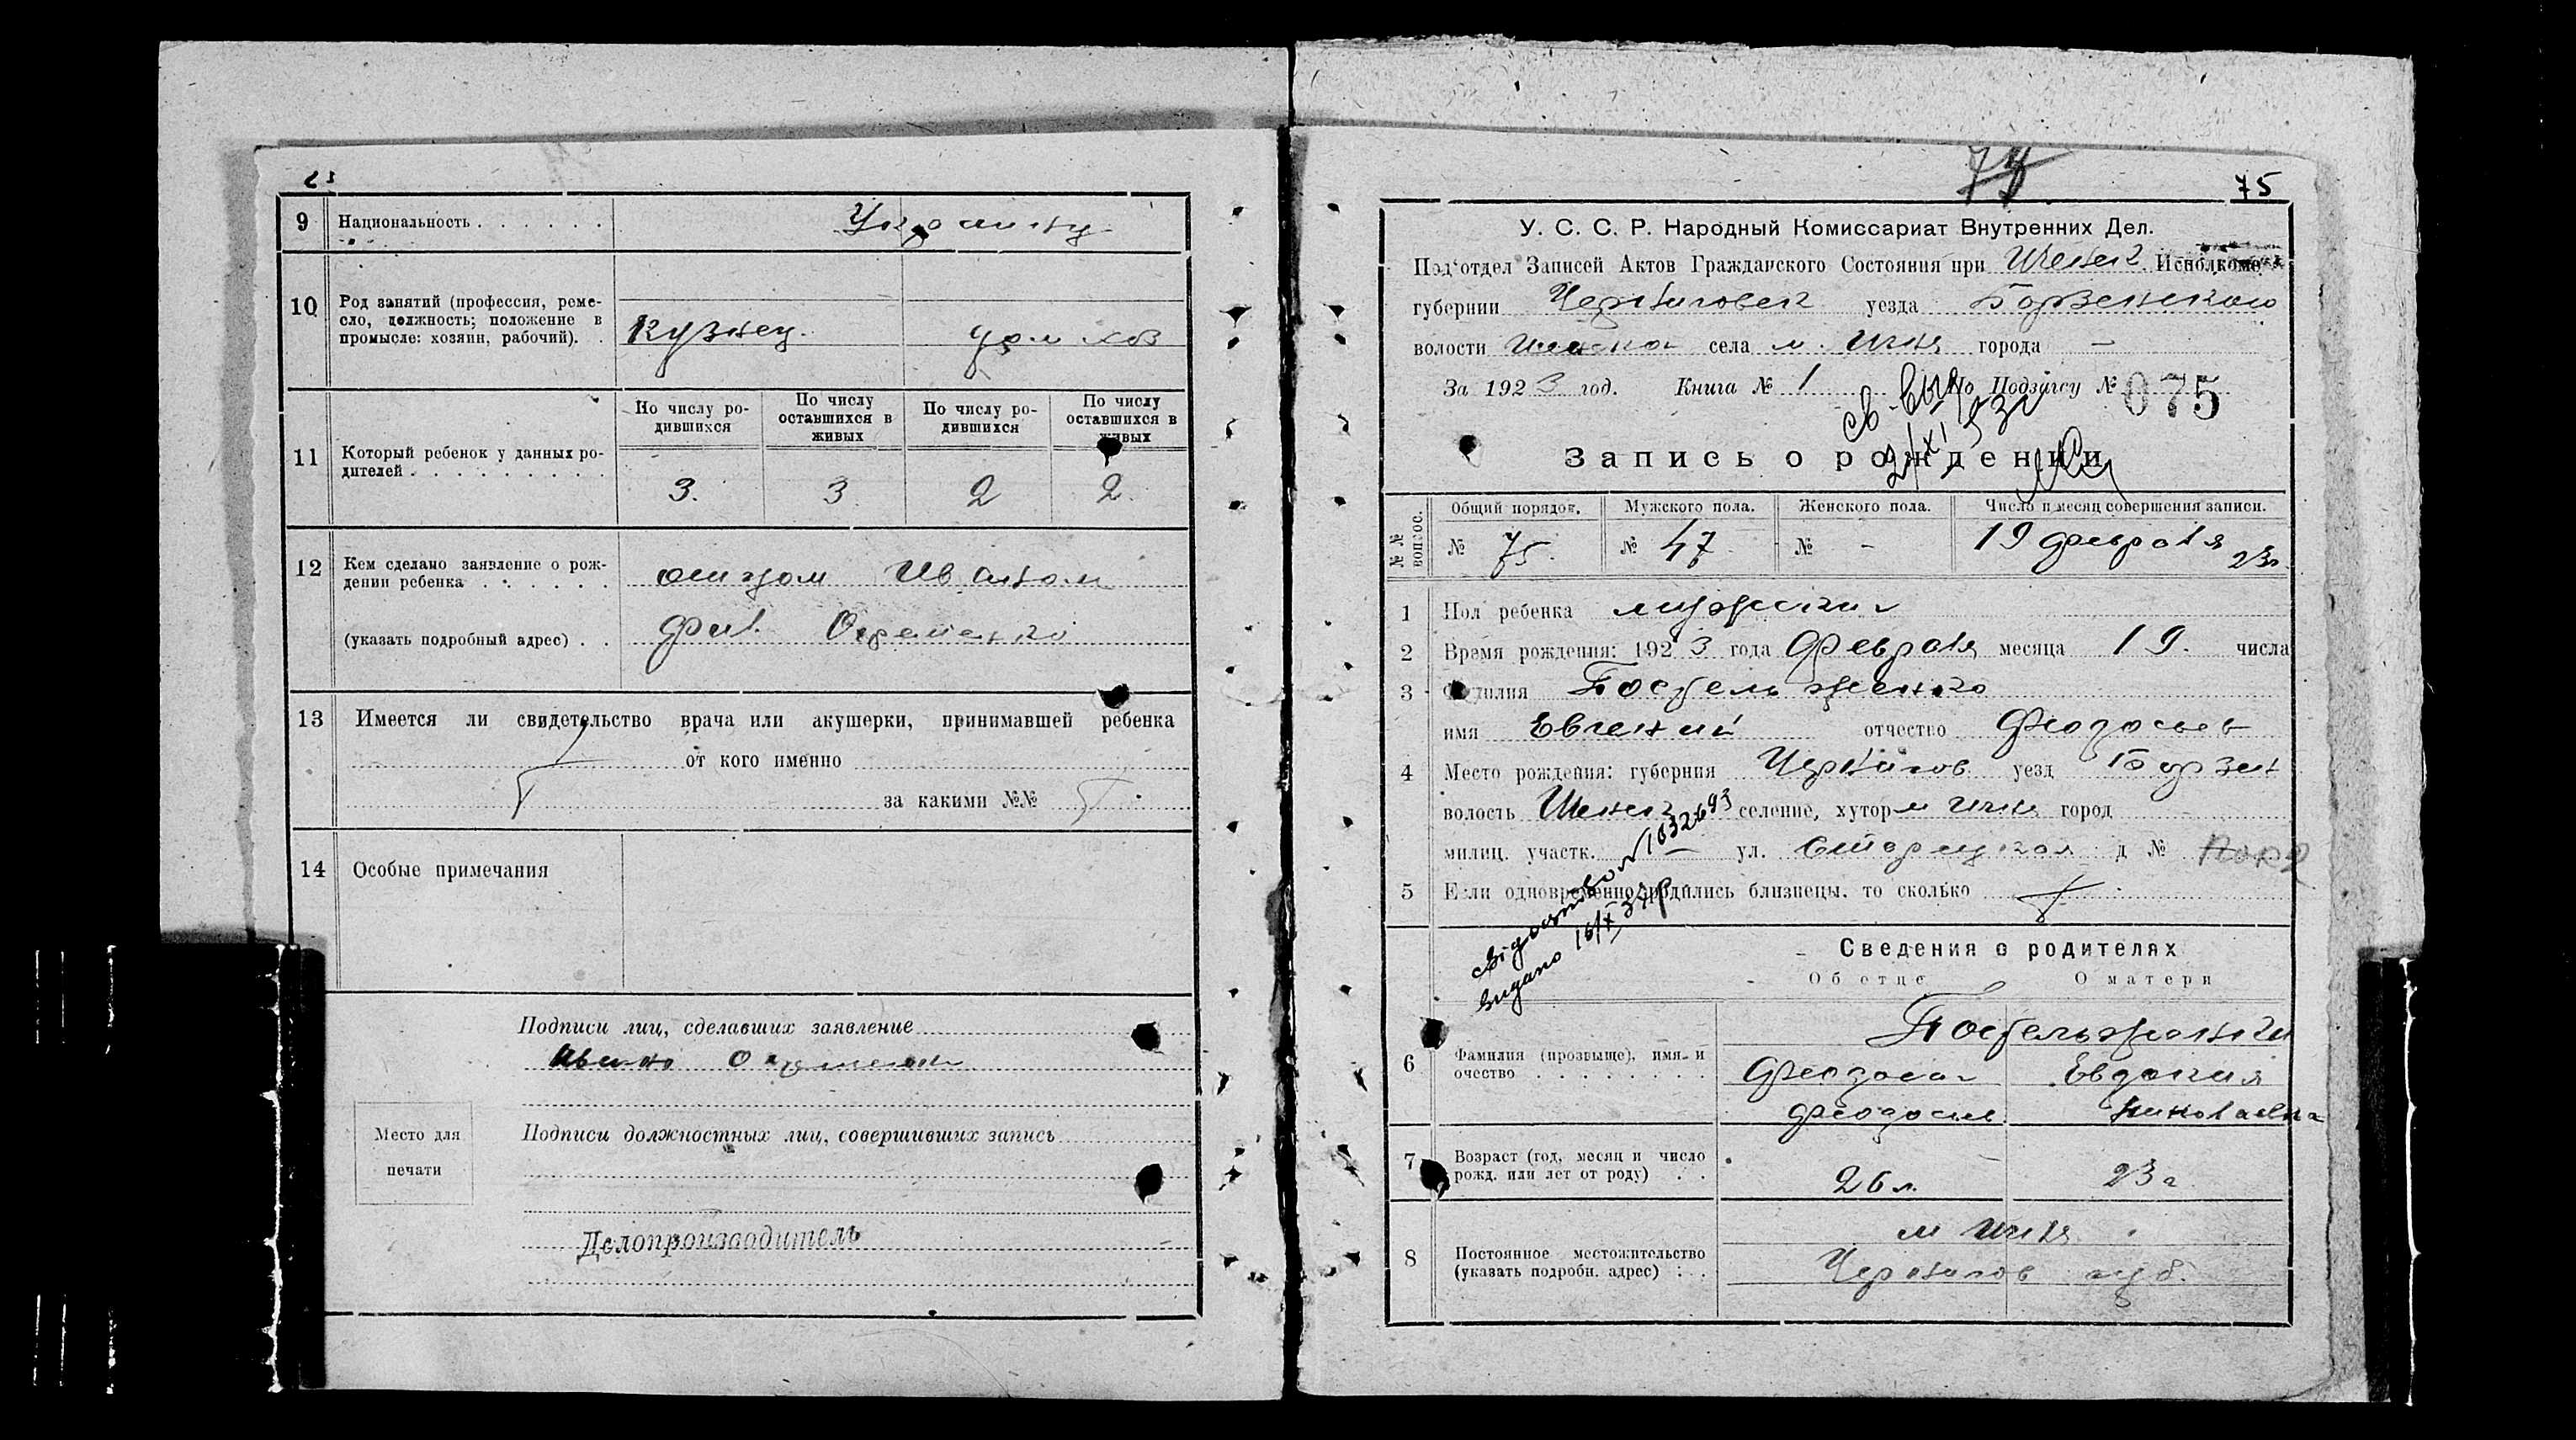 9 Национальность Украинцы
10 Род занятий (профессия, реме-
сло, должность; положение в
промысле: хозяин, рабочий).
Кузнец. дом хоз
11 Который ребенок у данных ро-
дителей
По числу ро-
дившихся
По числу
оставшихся в
живых
По числу ро-
дившихся
По числу
оставшихся в
живых
3. 3 2 2.
12 Кем сделано заявление о рож-
дении ребенка
(указать подробный адрес)
Иваном
13 Имеется ли свидетельство врача или акушерки, принимавшей ребенка
от кого именно
за какими №№
14 Особые примечания
Подписи лиц, сделавших заявление
Место для
печати
Подписи должностных лиц, совершивших запись
Делопроизводитель
75
У. С. С. Р. Народный Комиссариат Внутренних Дел.
Под'отдел Записей Актов Гражданского Состояния при Исполкоме
губернии Черниговск уезда Борзенского
волости села м. Ичня города —
За 1923 год. Книга № 1 По Подзагсу № 075
Запись о рождении
№№ вопрос.
Общий порядок. Мужского пола. Женского пола. Число и месяц совершения записи.
№ 75. № 47 № - 19 февраля 23г.
1 Пол ребенка мужской
2 Время рождения: 1923 года Февраля месяца 19. числа
3 Фамилия
имя Евгений отчество Феодосьев
4 Место рождения: губерния Чернигов уезд Борзен
волость селение, хутор м Ичня город
милиц. участк. — ул. д №
5 Если одновременно родились близнецы, то сколько
свідоцтво № 1032693
видано
Сведения о родителях
Об отце О матери
6 Фамилия (прозвыще), имя и
очество
Феодосий Евдокия
Феодосие Николаевна
7 Возраст (год, месяц и число
рожд. или лет от роду)
26 л. 23 г
8 Постоянное местожительство
(указать подробн. адрес)
м Ичня
Чернигов губ.